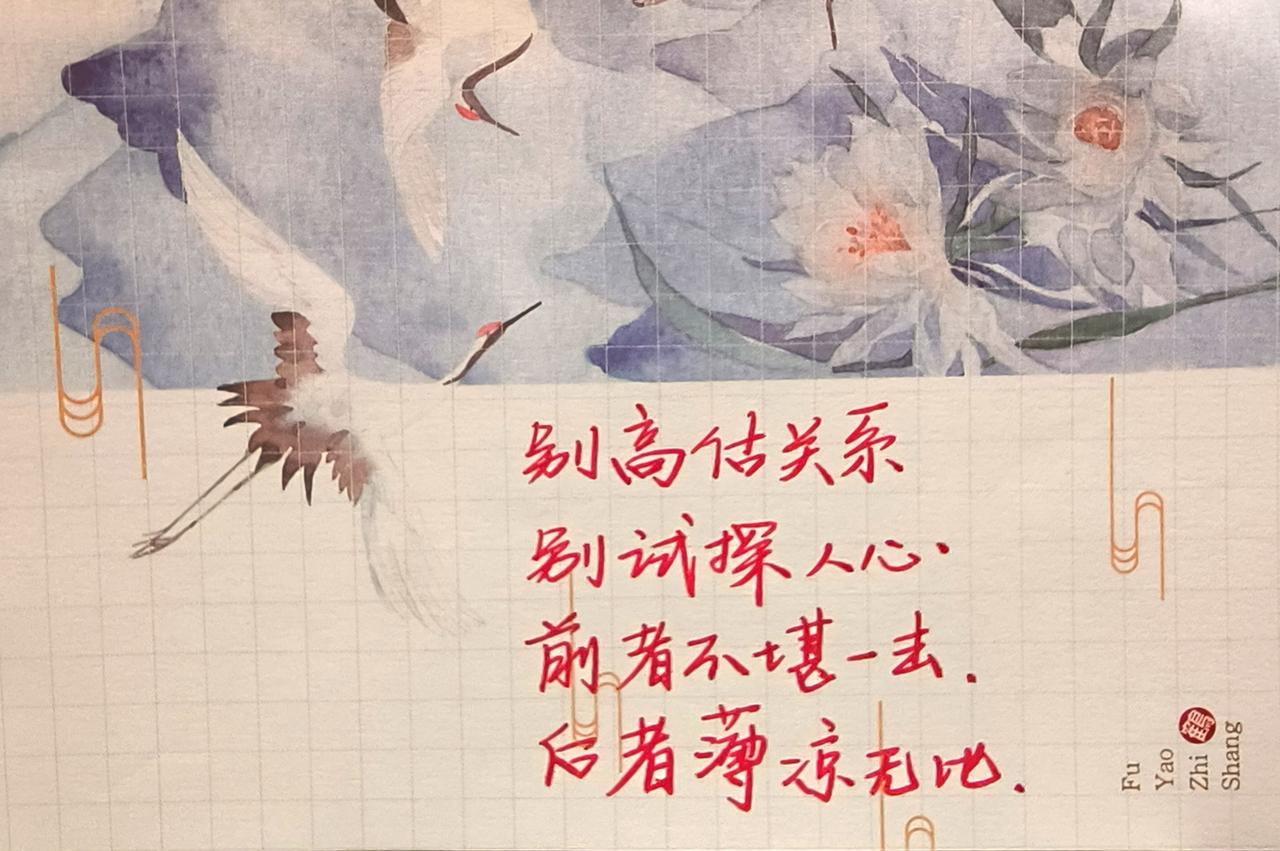 别高估关系
别试探人心.
前者不堪一击.
后者薄凉无比.
Fu
Yao
Zhi
Shang